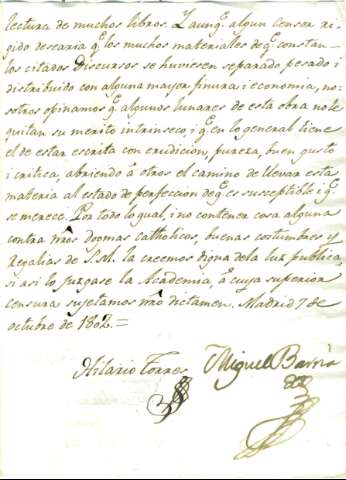 lectura de muchos libros. Y aunq.e algun censor ri-
gido desearia q.e los muchos materiales de q.e constan
los citados Discursos se huviesen separado pesado i
distribuido con alguna mayor finura i economia, no-
sotros opinamos q.e algunos lunares de esta obra no le
quitan su merito intrinseco, i q.e en lo general tiene
el de estar escrita con erudicion, pureza, buen gusto
i critica, abriendo á otros el camino de llevar esta
materia al estado de perfeccion de q.e es susceptible i q.e
se merece. Por todo lo qual, i no contener cosa alguna
contra ntros dogmas catholicos, buenas costumbres y
Regalias de S.M. la creemos digna de la luz publica,
si asi lo juzgase la Academia, á cuya superior
censura sujetamos ntro dictamen. Madrid 7 de
octubre de 1802.=
Hilario Torres Miguel